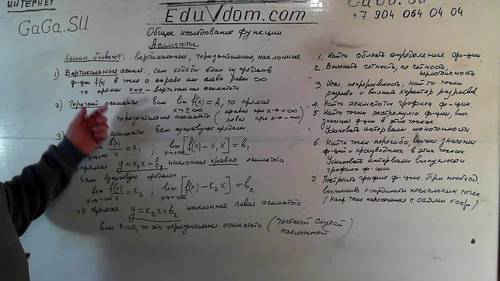 ИНТЕРНЕТ
GaGa.SU
EduVdom.com
GaGa.SU
+7 904 064 04 04
Общее исследование функции
Асимптоты.
бывают: Вертикальные, горизонтальные, наклонные
1) Вертикальная асимп.
ф-ции f(x) в точке a справа или слева равен ∞
то прямая x=a - вертикальная асимптота
2) асимптота Если lim f(x) = A, то прямая
x→±∞
горизонтальная асимптота (правая при x→+∞
левая при x→-∞)
3)
lim f(x)/x = k₁ ; lim [f(x) - k₁x] = b₁
прямая y = k₁x + b₁ наклонная правая асимптота.
Если существуют пределы
lim f(x)/x = k₂ ; lim [f(x) - k₂x] = b₂
x→-∞ x→-∞
то прямая y = k₂x + b₂ наклонная левая асимптота.
Если k=0, то это горизонтальная асимптота (частный случай
наклонной)
1. Найти область определения ф-ции
2. Выяснить четность, не четность,
периодичность
3. Исс. непрерывность, найти точки
разрыва и выяснить характер разрывов
4. Найти асимптоты графика ф-ции.
5. Найти точки экстремума ф-ции, выч.
значения ф-ции в этих точках
Установить интервалы монотонности
6. Найти точки перегиба, вычисл. значения
ф-ции и производной в этих точках
Установить интервалы выпуклости
графика ф-ции
7. Построить график ф-ции. При необход.
нескольких точек
(напр. точки пересечения с осями коор.)